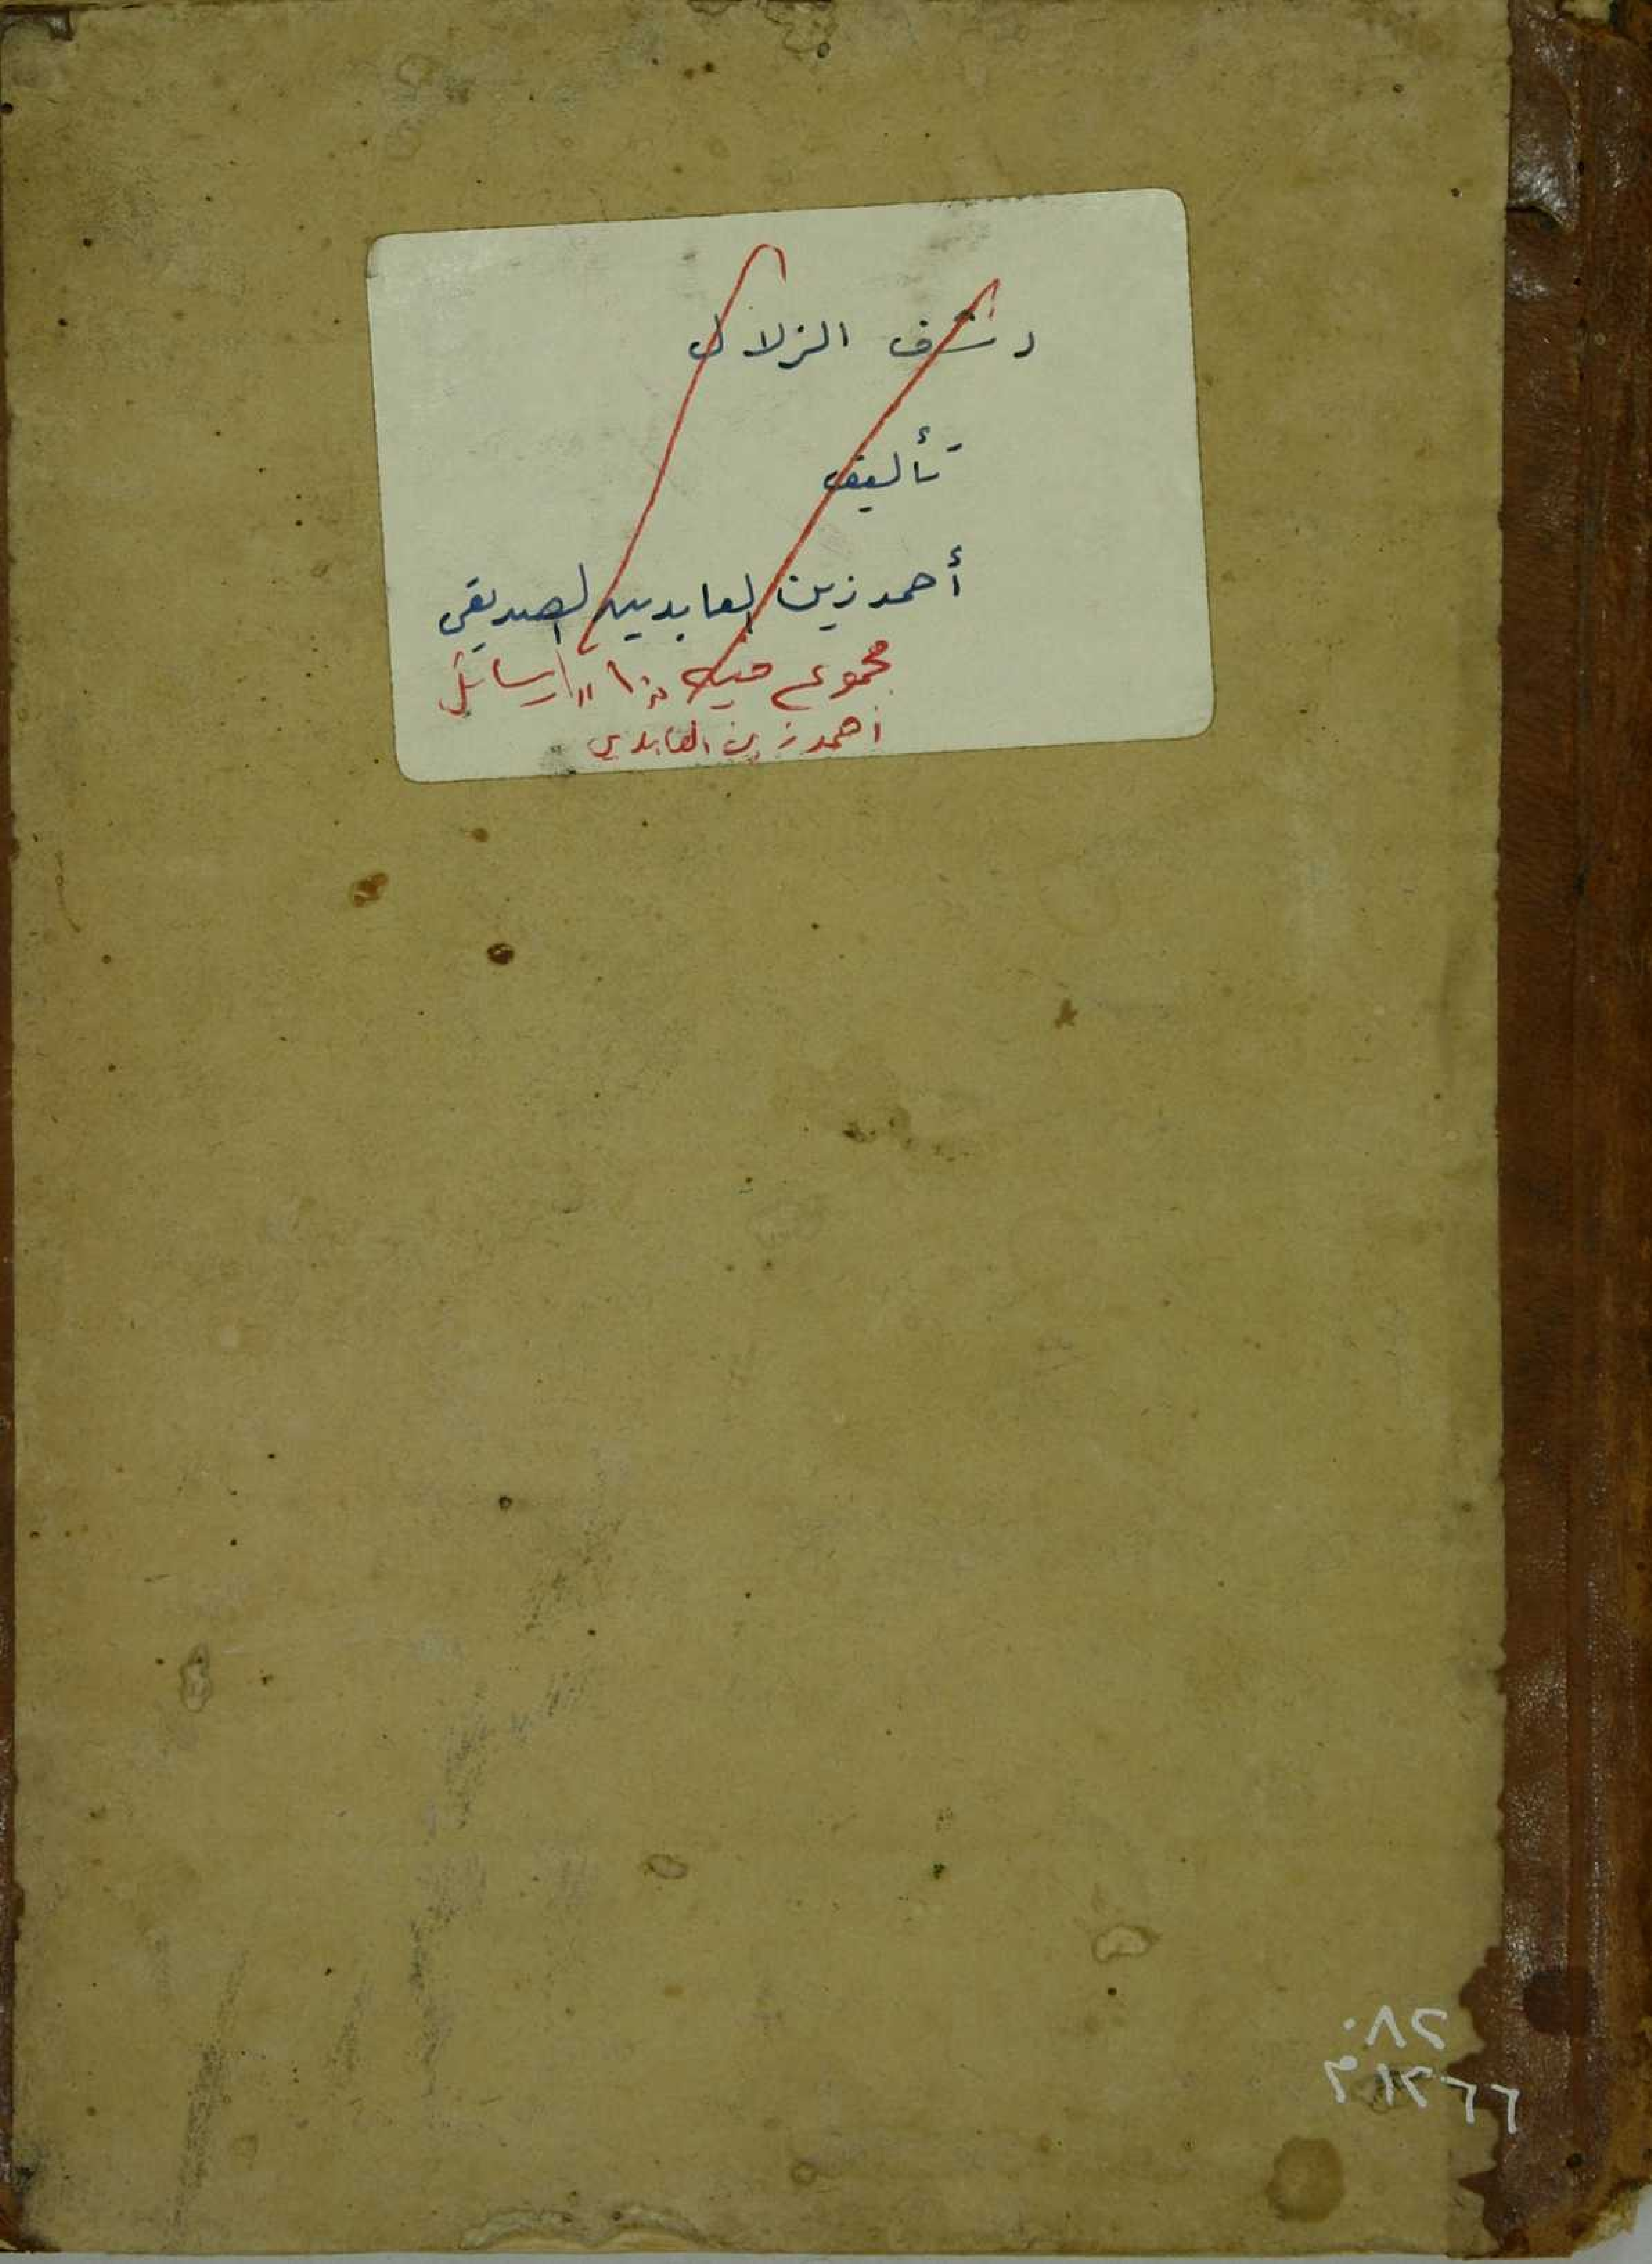 رشف الزلال
تأليف
أحمد زين العابدين الصديقي
مجموع فيه رسائل
أحمد زين العابدين
٢٨٠